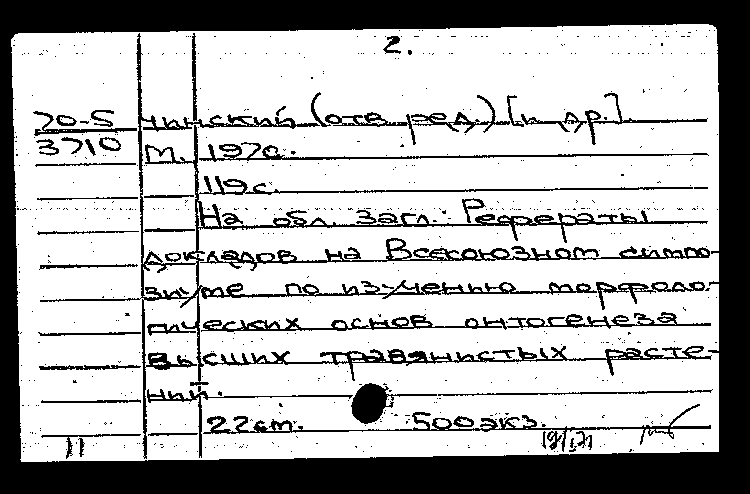 2.
70-5 чинский (отв. ред.) [и др.].
3710 М. 1970.
119 с.
На обл. загл.: Рефераты
докладов на Всесоюзном симпо-
зиуме по изучению морфоло-
гических основ онтогенеза
высших травянистых расте-
ний.
22 см. 500 экз.
11